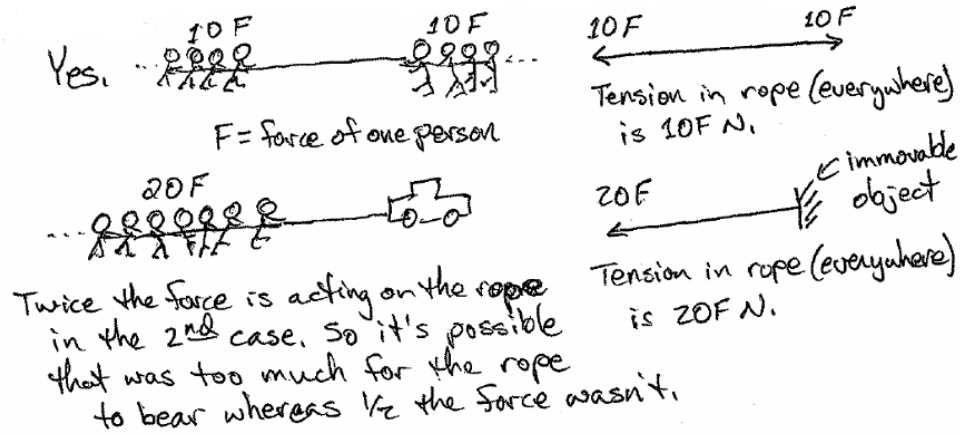 10 F 10 F 10F 10F
Yes.
Tension in rope (everywhere)
is 10F N.
F = force of one person
20F
immovable
object
20F
Tension in rope (everywhere)
is 20F N.
Twice the force is acting on the rope
in the 2nd case. So it's possible
that was too much for the rope
to bear whereas 1/2 the force wasn't.